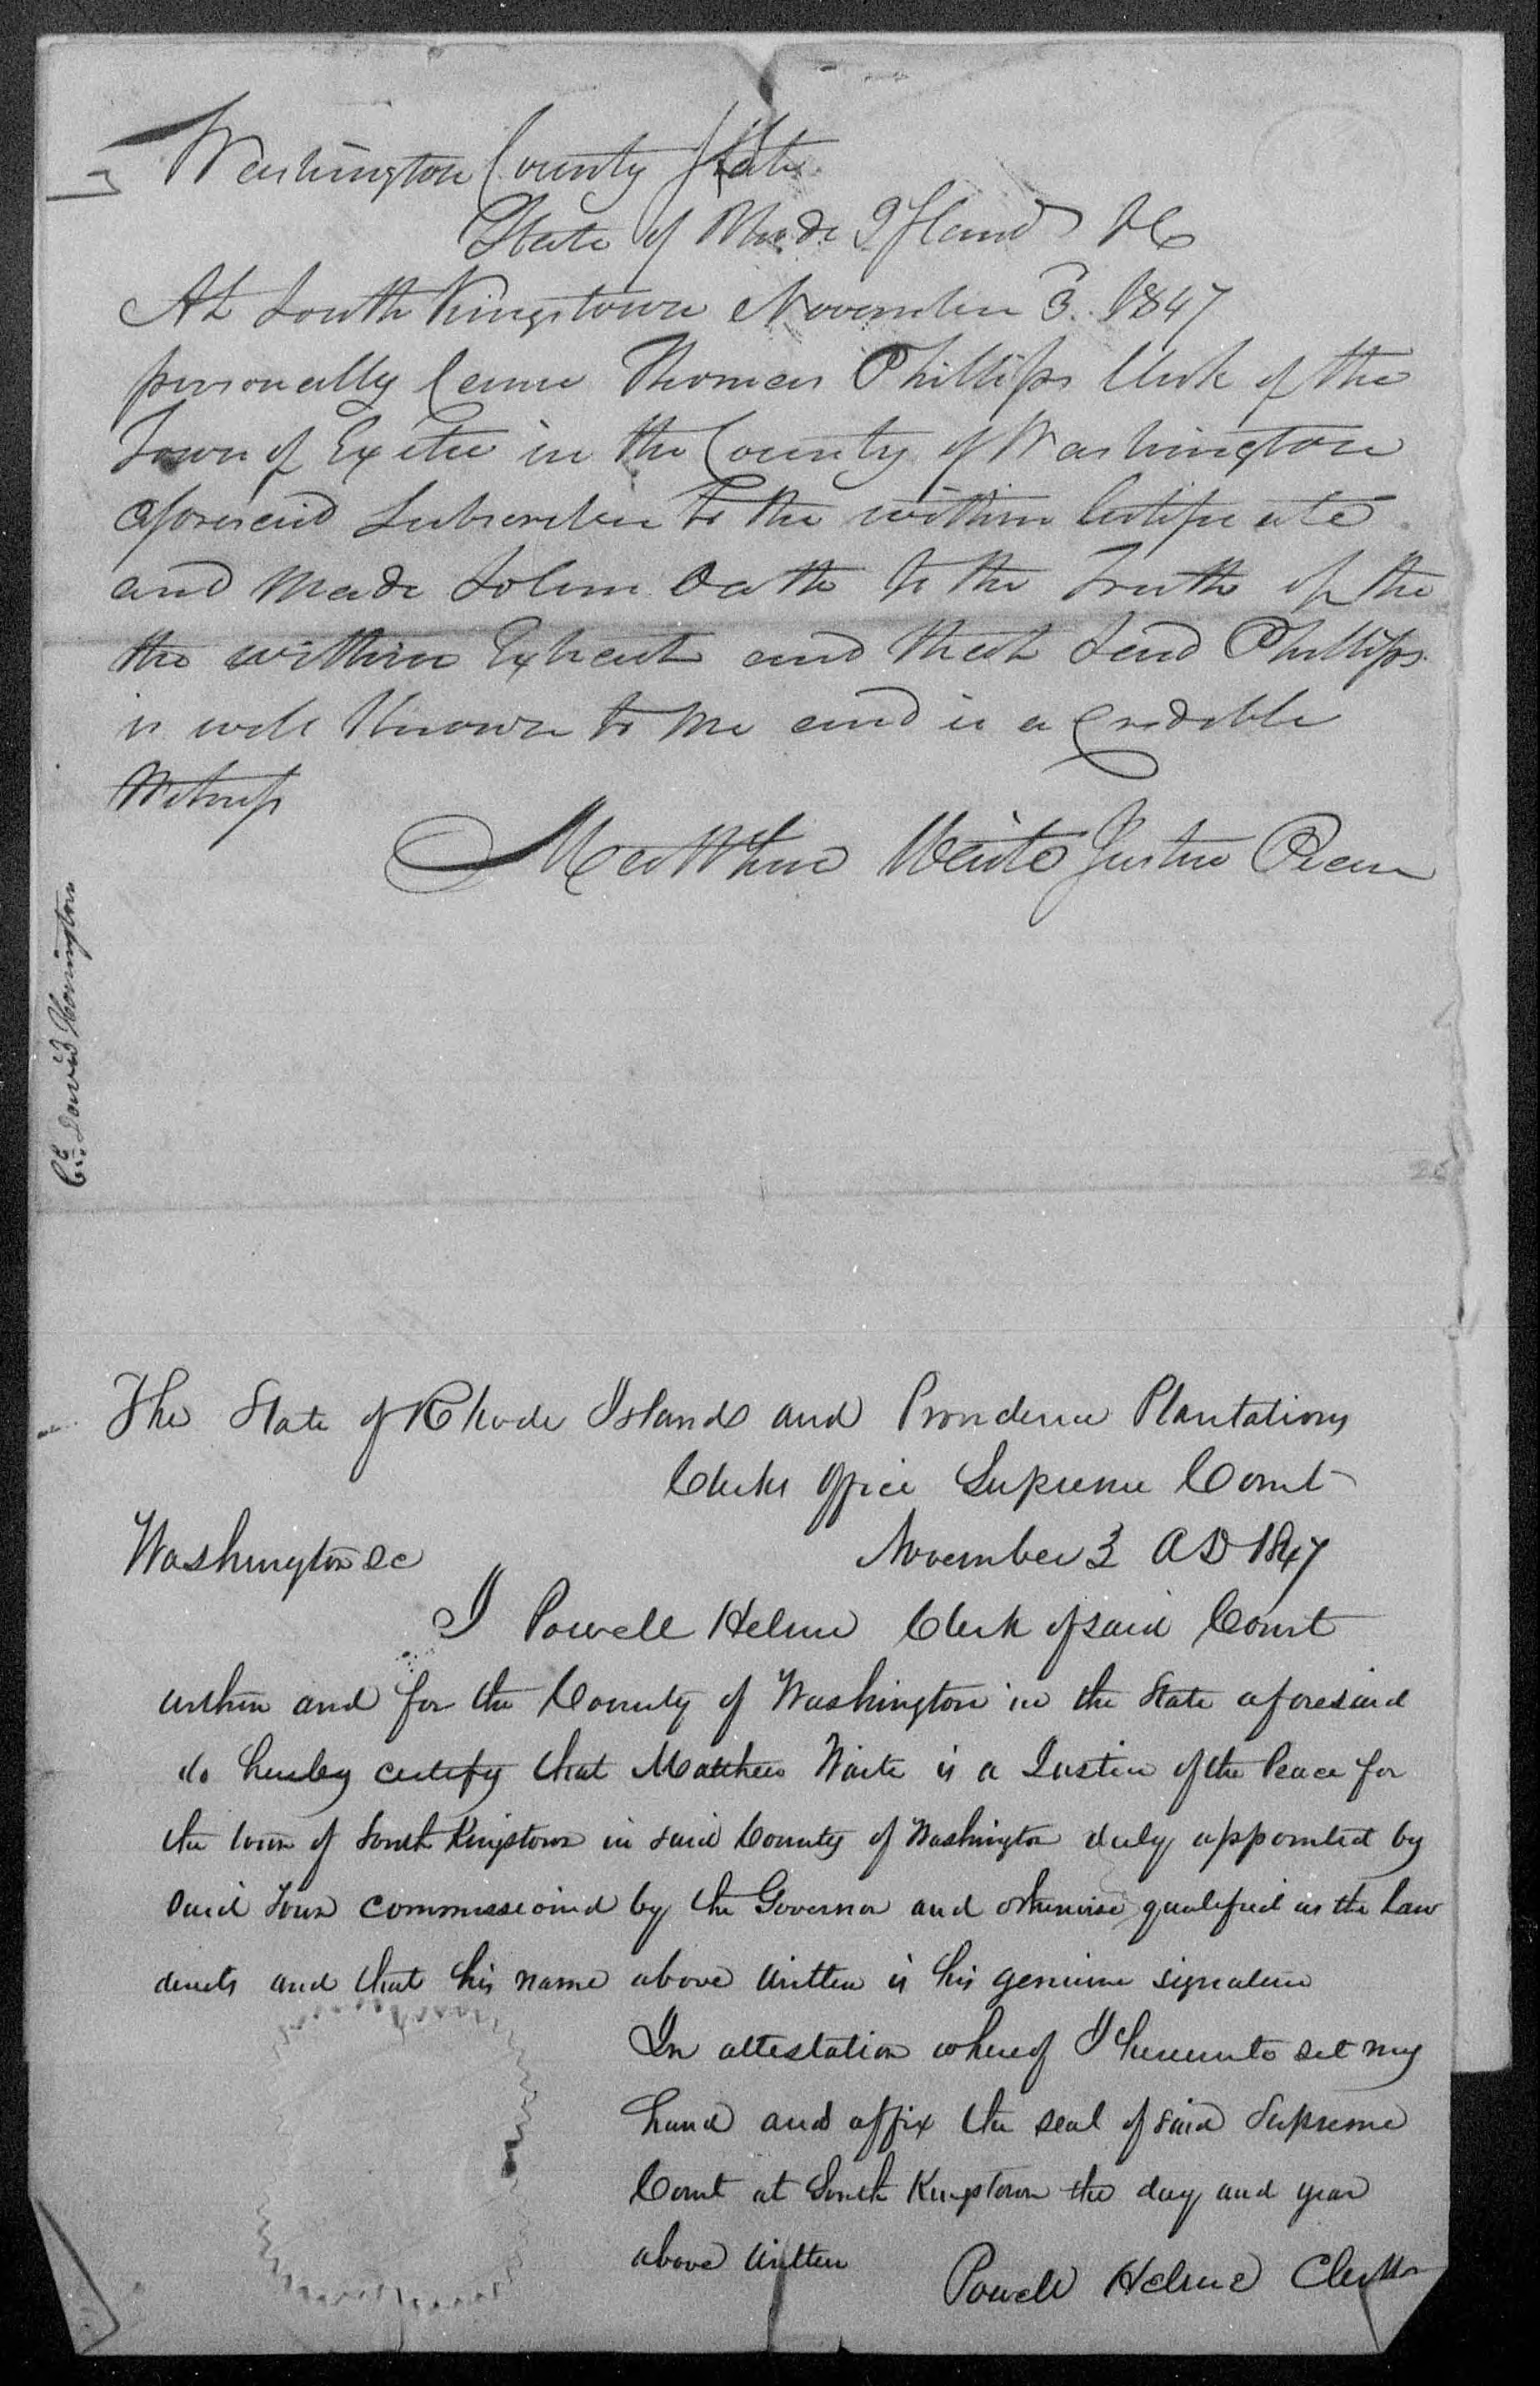 Washington County State
State of Rhode Island Sc
At South Kingstown November 3. 1847
personally Came Thomas Phillips Clerk of the
Town of Exeter in the County of Washington
aforesaid Subscriber to the within Certificate
and Made Solem Oath to the Truth of the
the within Extract and that Said Phillips
is well Known to me and is a Credable
Witness
Matthew Waite Justice Peace
David Honington
The State of Rhode Island and Providence Plantations
Clerks Office Supreme Court
Washington Sc November 3 AD 1847
I Powell Helme Clerk of said Court
within and for the County of Washington in the State aforesaid
do hereby certify that Matthew Waite is a Justice of the Peace for
the town of South Kingstown in said County of Washington duly appointed by
said Town commissioned by the Governor and otherwise qualified as the Law
directs and that his name above written is his genuine signature
In attestation whereof I hereunto set my
hand and affix the seal of said Supreme
Court at South Kingstown the day and year
above written
Powell Helme Clerk